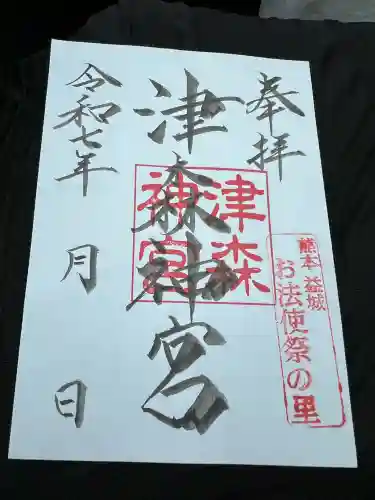 奉拝
津森神宮
津森
神宮
熊本 益城
お法使祭の里
令和七年 月 日